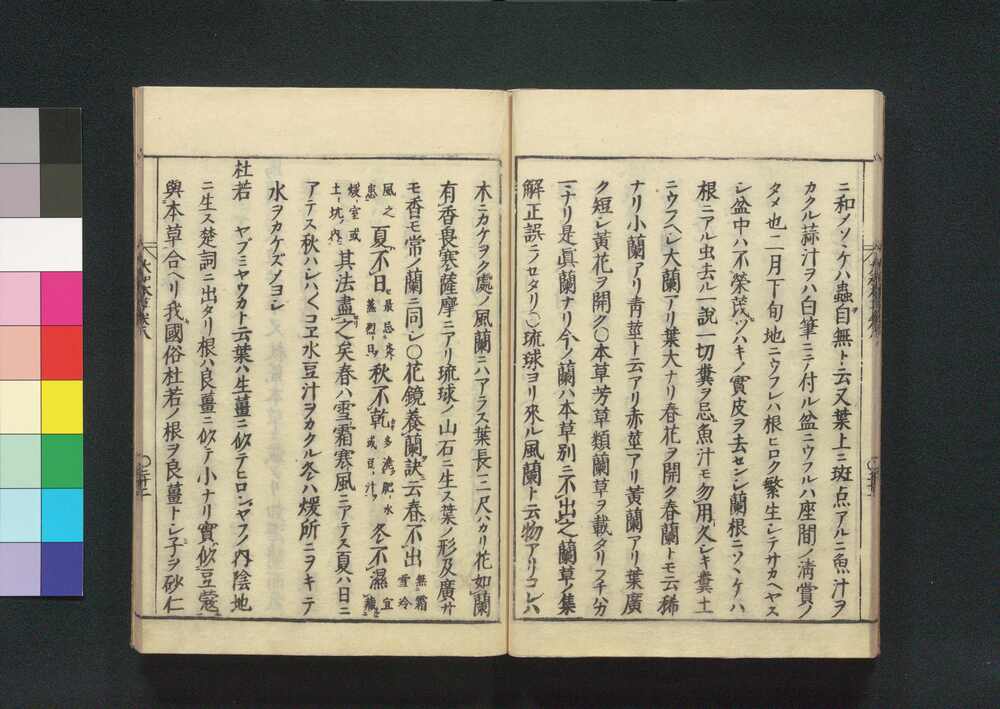 ニ和メソヽケハ蟲自無ト云又葉上ニ斑点アルニ魚汁ヲ
カクル蒜汁ヲハ白筆ニテ付ル盆ニウフルハ座間ノ清賞ノ
タメ也二月下旬地ニウフレハ根ヒロク繁生シテサカヘヤス
シ盆中ハ不榮茂ツハキノ實皮ヲ去センシ蘭根ニソヽケハ
根ニアル虫去ル一説一切糞ヲ忌魚汁モ勿用久シキ糞土
ニウフヘシ大蘭アリ葉大ナリ春花ヲ開ク春蘭トモ云稀
ナリ小蘭アリ靑莖ト云アリ赤莖アリ黃蘭アリ葉廣
ク短シ黃花ヲ開ク〇本草芳草類蘭草ヲ載タリフチハカ
マナリ是眞蘭ナリ今ノ蘭ハ本草別ニ不出之蘭草ノ集
解正誤ニノセタリ〇琉球ヨリ來ル風蘭ト云物アリコレハ
木ニカケヲク處ノ風蘭ニハアラス葉長一二尺ハカリ花如蘭
有香畏寒薩摩ニアリ琉球ノ山石ニ生ス葉ノ形及廣サ
モ香モ常ノ蘭ニ同シ〇花鏡養蘭訣云春不出無霜雪冷
風之患夏不日最忌炎蒸烈日秋不乾多澆肥水或豆汁冬不濕宜藏
煖室或土坑內其法盡之矣春ハ雪霜寒風ニアテス夏ハ日ニ
アテス秋ハシハ〱コヱ水豆汁ヲカクル冬ハ煖所ニヲキテ
水ヲカケズメヨシ
杜若 ヤブミヤウカト云葉ハ生薑ニ似テヒロシヤフノ內陰地
ニ生ス楚詞ニ出タリ根ハ良薑ニ似テ小ナリ實似豆蔻
與本草合ヘリ我國俗杜若ノ根ヲ良薑トシ子ヲ砂仁